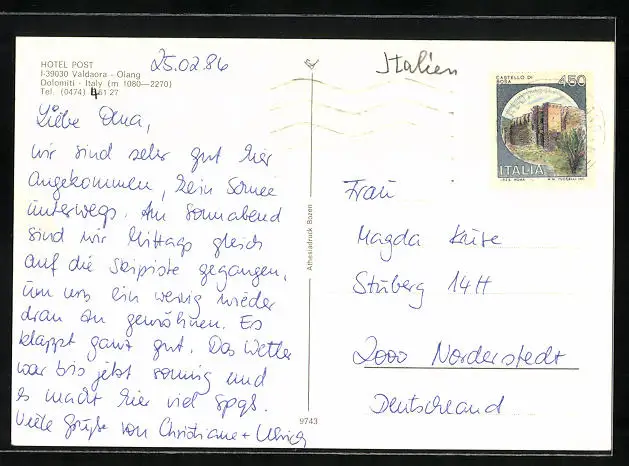 HOTEL POST
I-39030 Valdaora - Olang
Dolomiti - Italy (m 1080—2270)
Tel. (0474) 461 27
25.02.86
Italien
CASTELLO DI BOSA
450
ITALIA
Liebe Oma,
wir sind sehr gut hier
angekommen, kein Schnee
unterwegs. Am Sonnabend
sind wir Mittags gleich
auf die Skipiste gegangen,
um uns ein wenig wieder
dran zu gewöhnen. Es
klappt ganz gut. Das Wetter
war bis jetzt sonnig und
es macht hier viel Spaß.
Viele Grüße von Christiane + Ulrich
Athesiadruck Bozen
9743
Frau
Magda
14H
2000 Norderstedt
Deutschland